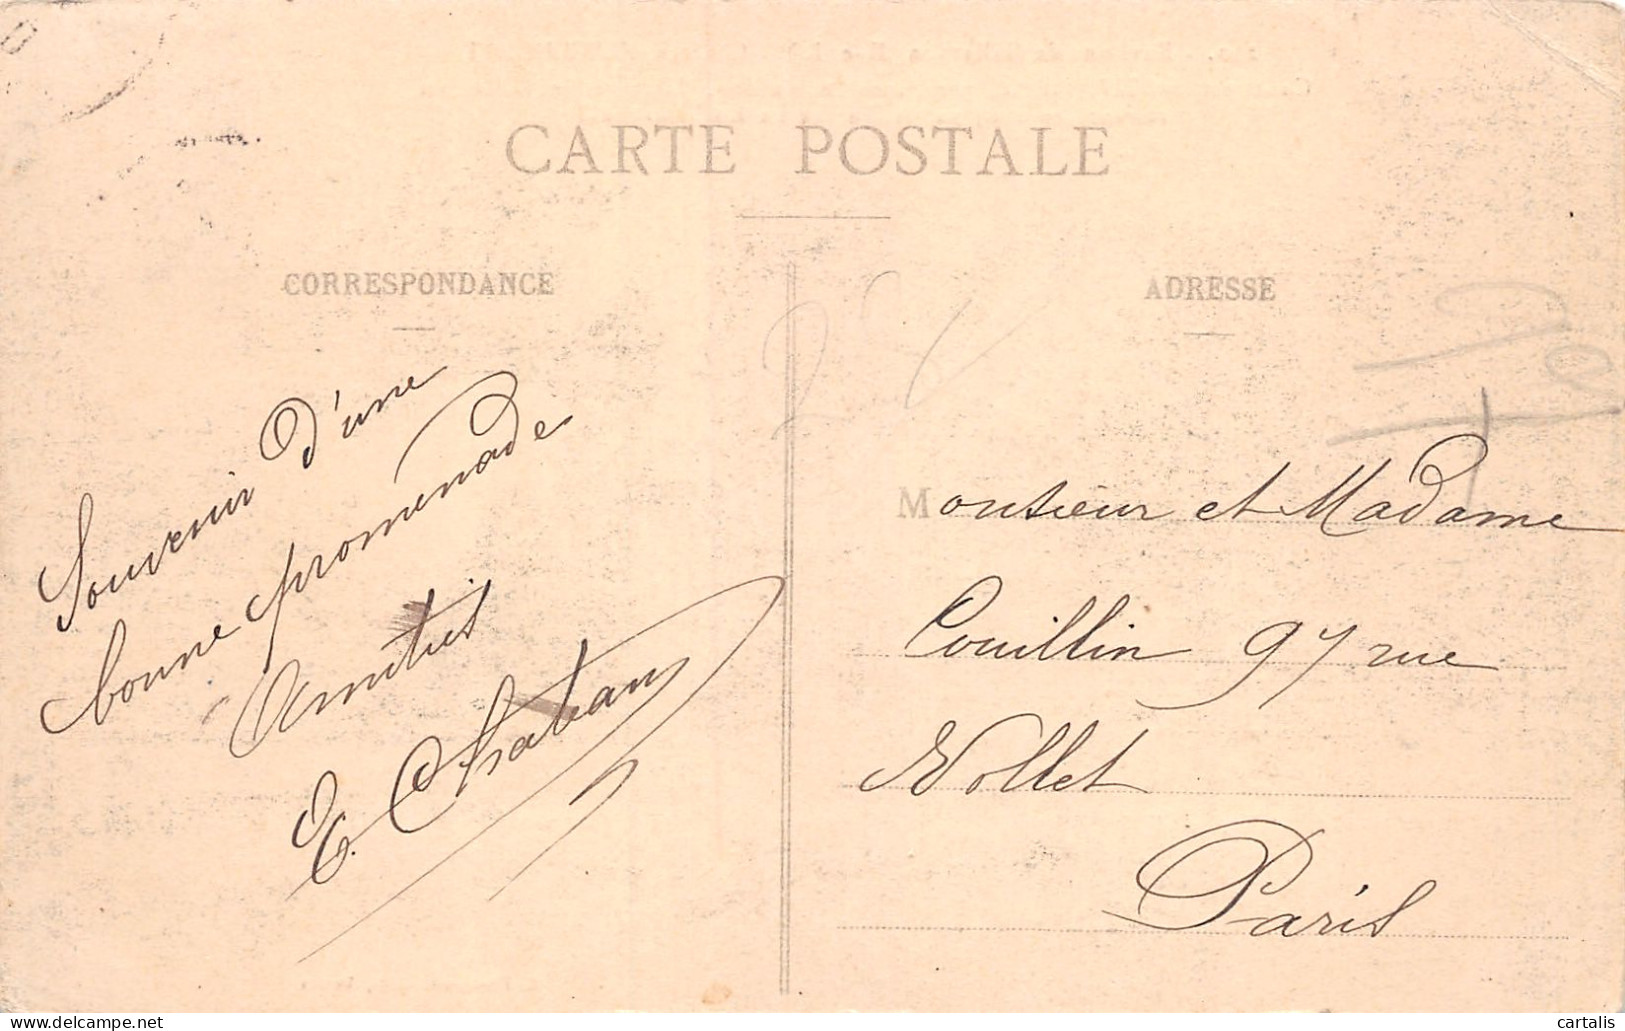 CARTE POSTALE
CORRESPONDANCE
Souvenir d'une
bonne promenade
Amitiés
E. Chateau
ADRESSE
Monsieur et Madame
Couillin 97 rue
Nollet
Paris
delcampe.net
cartalis